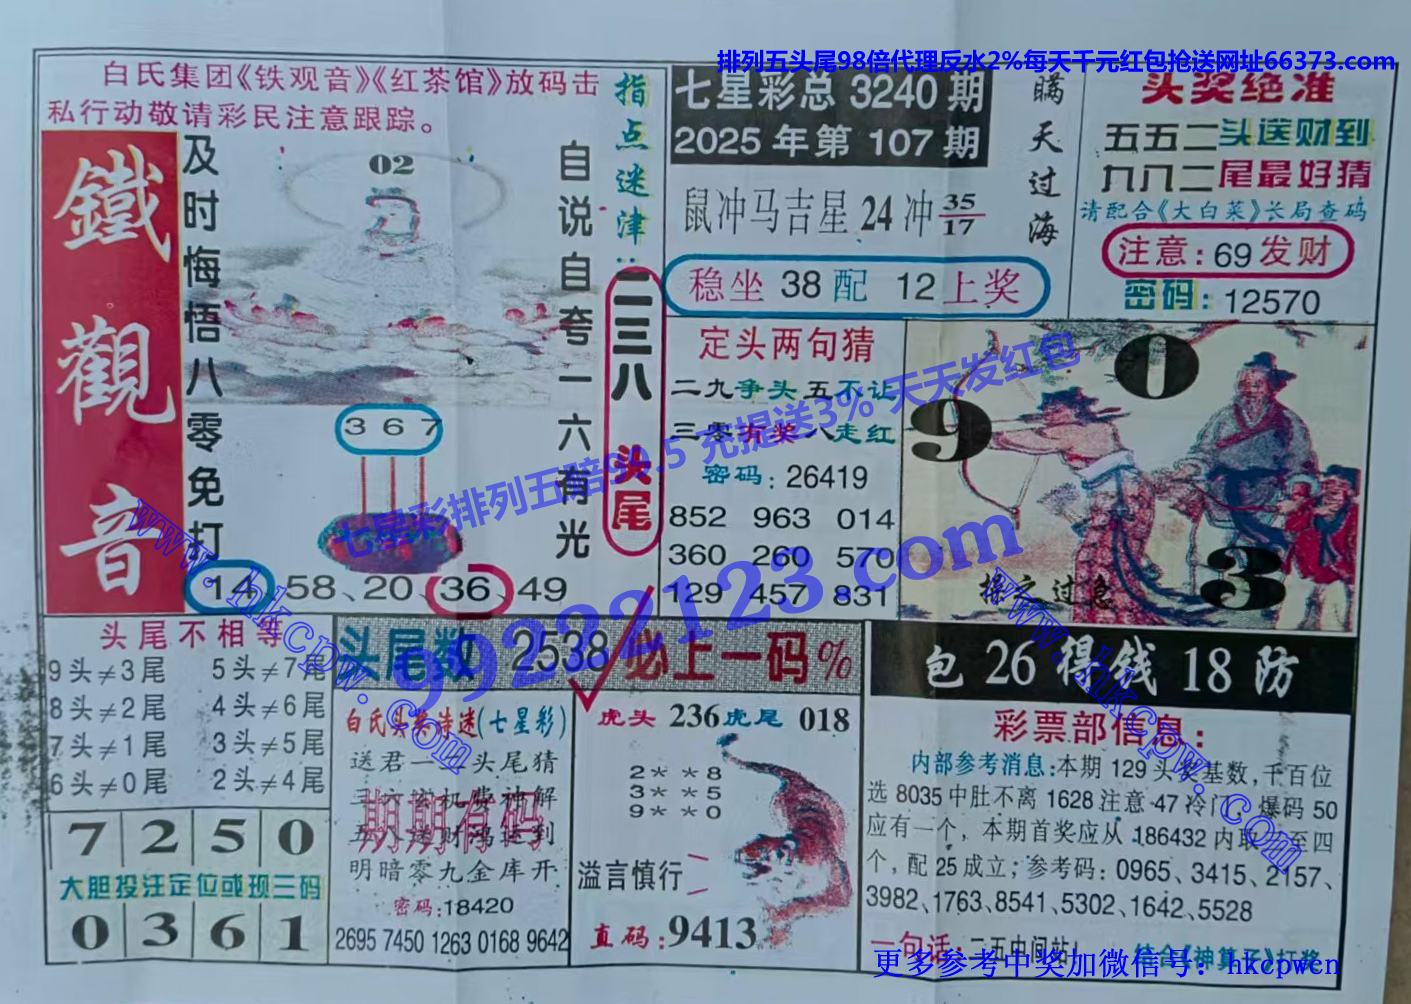 排列五头尾98倍代理反水2%每天千元红包抢送网址66373.com
白氏集团《铁观音》《红茶馆》放码击
私行动敬请彩民注意跟踪。
鐵觀音
及时悔悟八零免打
02
自说自夸一六有光
367
14、58、20、36、49
指点迷津:
二三八头尾
七星彩总 3240 期
2025 年第 107 期
瞒天过海
鼠冲马吉星 24 冲 35/17
稳坐 38 配 12 上奖
头奖绝准
五五二头送财到
九八二尾最好猜
请配合《大白菜》长局查码
注意: 69 发财
密码: 12570
定头两句猜
二九争头五不让
三零有奖八走红
密码: 26419
852 963 014
360 260 570
129 457 831
9 0 3
七星彩排列五赔99.5 充提送3% 天天发红包
99232123.com
www.hkcpw.com
www.hkcpw.com
头尾不相等
9头≠3尾 5头≠7尾
8头≠2尾 4头≠6尾
7头≠1尾 3头≠5尾
6头≠0尾 2头≠4尾
7 2 5 0
大胆投注定位或现三码
0 3 6 1
头尾数 2538 必上一码%
白氏头奖诗迷(七星彩)
送君一二头尾猜
期期有码
明暗零九金库开
密码:18420
2695 7450 1263 0168 9642
虎头 236 虎尾 018
2**8
3**5
9**0
溢言慎行
直码:9413
包 26 得钱 18 防
彩票部信息:
内部参考消息:本期 129 头奖基数,千百位
选 8035 中肚不离 1628 注意 47 冷门,爆码 50
应有一个, 本期首奖应从 186432 内取二至四
个, 配 25 成立; 参考码: 0965、3415、2157、
3982、1763、8541、5302、1642、5528
一句话: 二五中间站!
结合《神算子》打奖
更多参考中奖加微信号: hkcpwcn